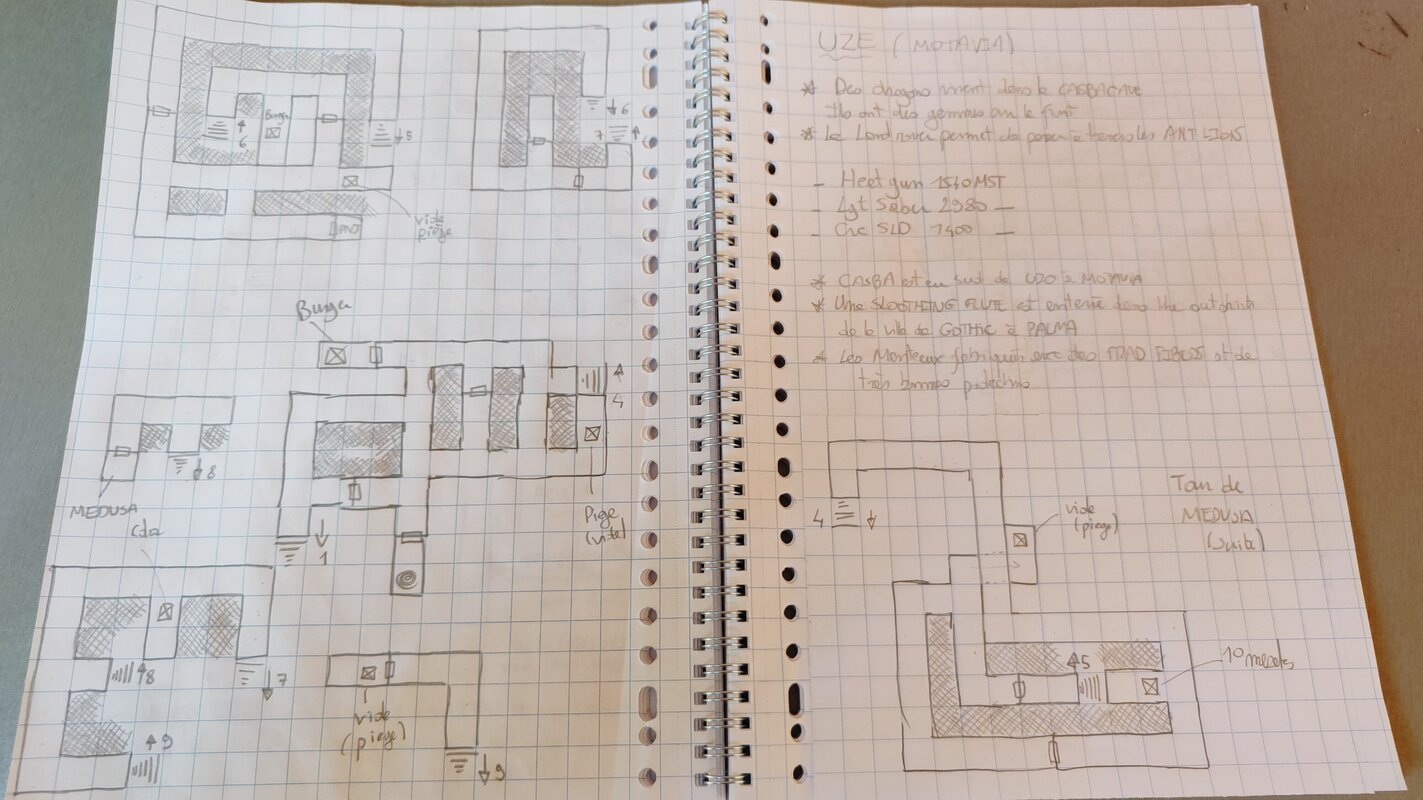 Burger
6
5
vide
piège
PNJ
6
7
Burger
4
8
MEDUSA
1
Piège
(vide)
8
7
9
vide
(piège)
9
UZE (MOTAVIA)
* Des dragons vivent dans le CASBACAVE
Ils ont des gemmes sur le front
* Le Land rover permet de passer à travers les ANT LIONS
- Heat gun 1540 MST
- Lgt Saber 2980 —
- Crc SLD 1400 —
* CASBA est au sud de UZO à MOTAVIA
* Une SOOTHING FLUTE est enterrée dans the outskirts
de la ville de GOTHIC à PALMA
* Les Manteaux fabriqués avec des
et de
très bonnes protections
4
vide
(piège)
Tour de
MEDUSA
(suite)
5